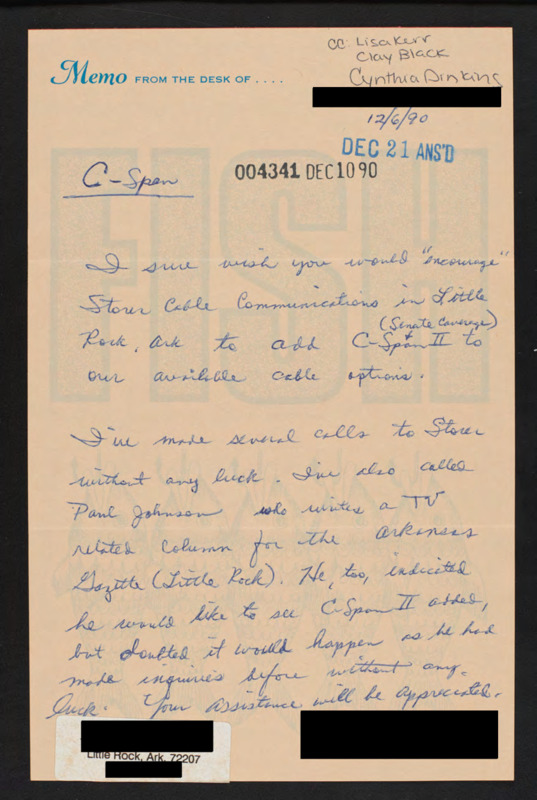 CC: Lisa Kerr
Clay Black
Cynthia Dinkins
Memo FROM THE DESK OF ....
12/6/90
DEC 21 ANS'D
004341 DEC 10 90
C-Span
FISH
I sure wish you would "encourage"
Storer Cable Communications in Little
Rock, Ark to add C-Span II to
(Senate Coverage)
our available cable options.
I've made several calls to Storer
without any luck. I've also called
Paul Johnson who writes a TV
related column for the Arkansas
Gazette (Little Rock). He, too, indicated
he would like to see C-Span II added,
but doubted it would happen as he had
made inquiries before without any
luck. Your assistance will be appreciated.
Little Rock, Ark. 72207